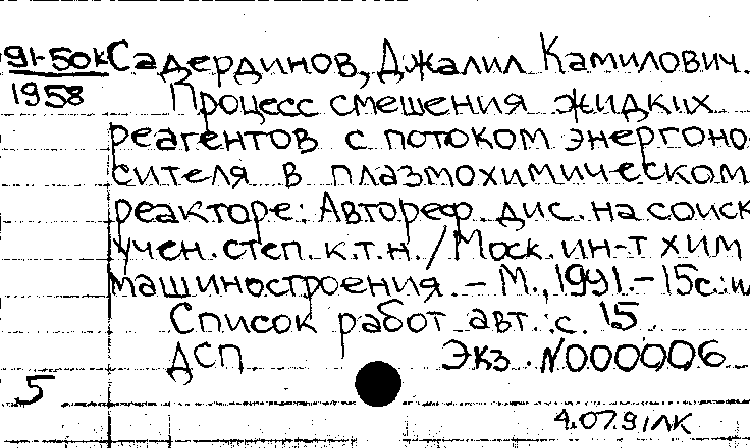 91-50к Садердинов, Джалил Камилович.
1958 Процесс смешения жидких
реагентов с потоком энергоно-
сителя в плазмохимическом
реакторе: Автореф. дис. на соиск.
учен. степ. к.т.н. / Моск. ин-т хим.
машиностроения. - М., 1991. - 15с.: и
Список работ авт.: с. 15.
ДСП Экз. N000006
5
4.07.91ЛК